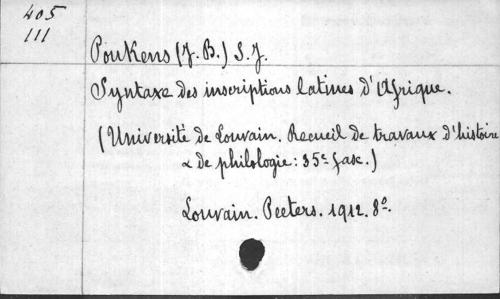 405
111
Poukens (J. B.) S. J.
Syntaxe des inscriptions latines d'Afrique.
(Université de Louvain. Recueil de travaux d'histoire
& de philologie: 35e fasc.)
Louvain. Peeters. 1912. 8o.